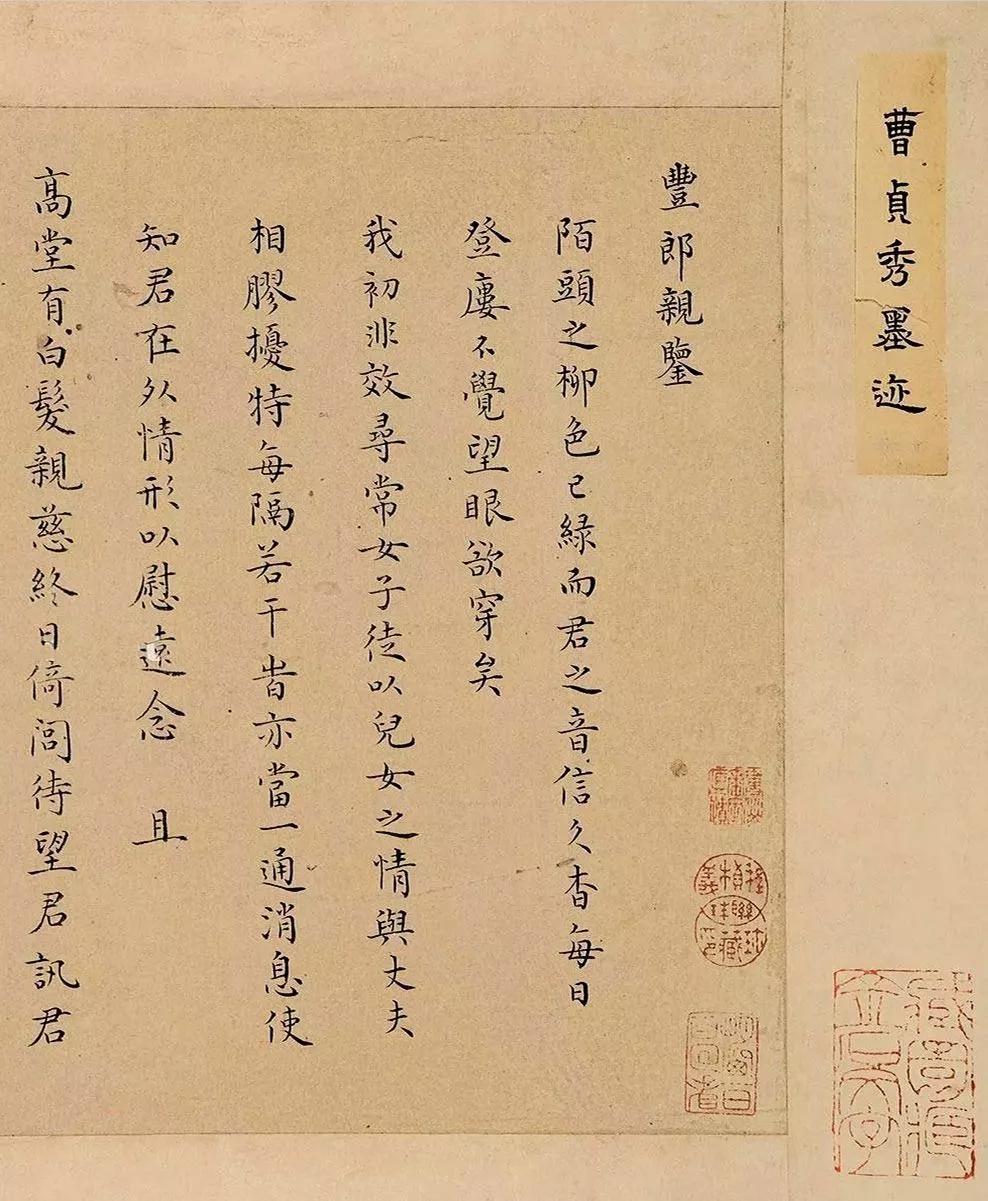 曹貞秀墨迹
豐郎親鑒
陌頭之柳色已緑而君之音信久杳每日
登廔不覺望眼欲穿矣
我初非效尋常女子徒以兒女之情與丈夫
相膠擾特每隔若干旹亦當一通消息使
知君在外情形以慰遠念 且
高堂有白髮親慈終日倚閭待望君訊君